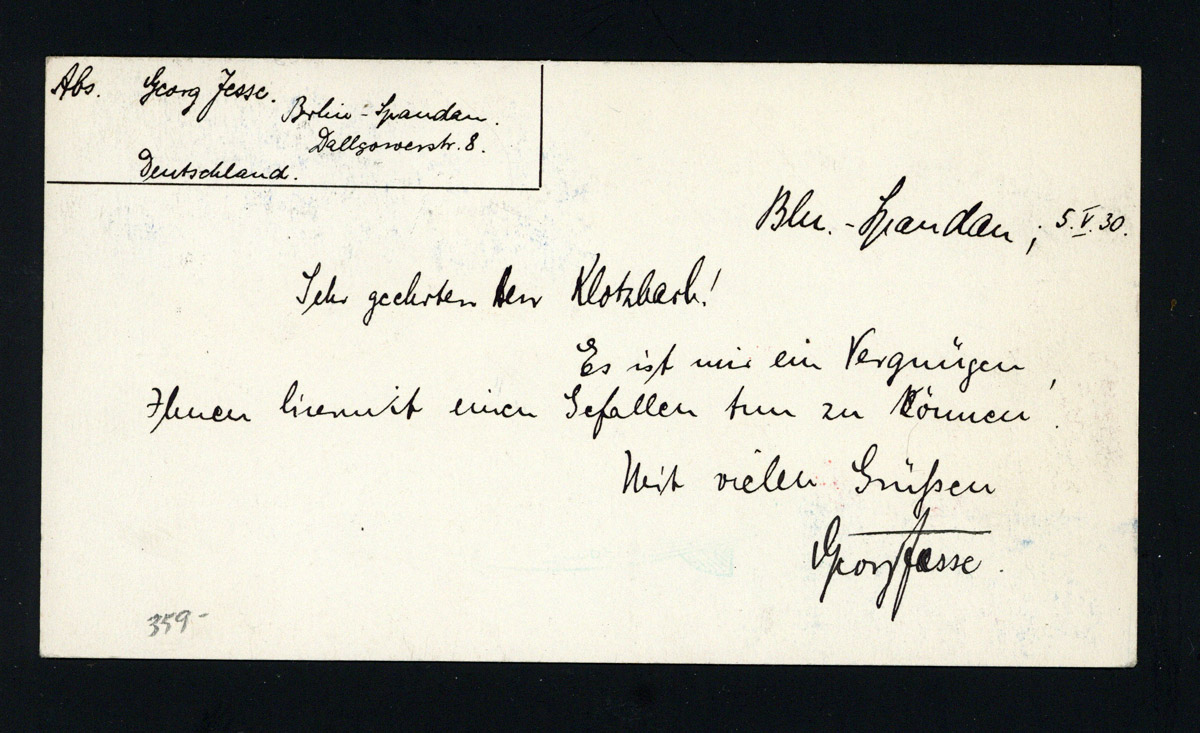 Abs. Georg Jesse.
Berlin-Spandau.
Dallgowerstr. 8.
Deutschland.
Bln.-Spandau, 5.V.30.
Sehr geehrter Herr Klotzbach!
Es ist mir ein Vergnügen,
Ihnen hiermit einen Gefallen tun zu können.
Mit vielen Grüßen
Georg Jesse.
359-